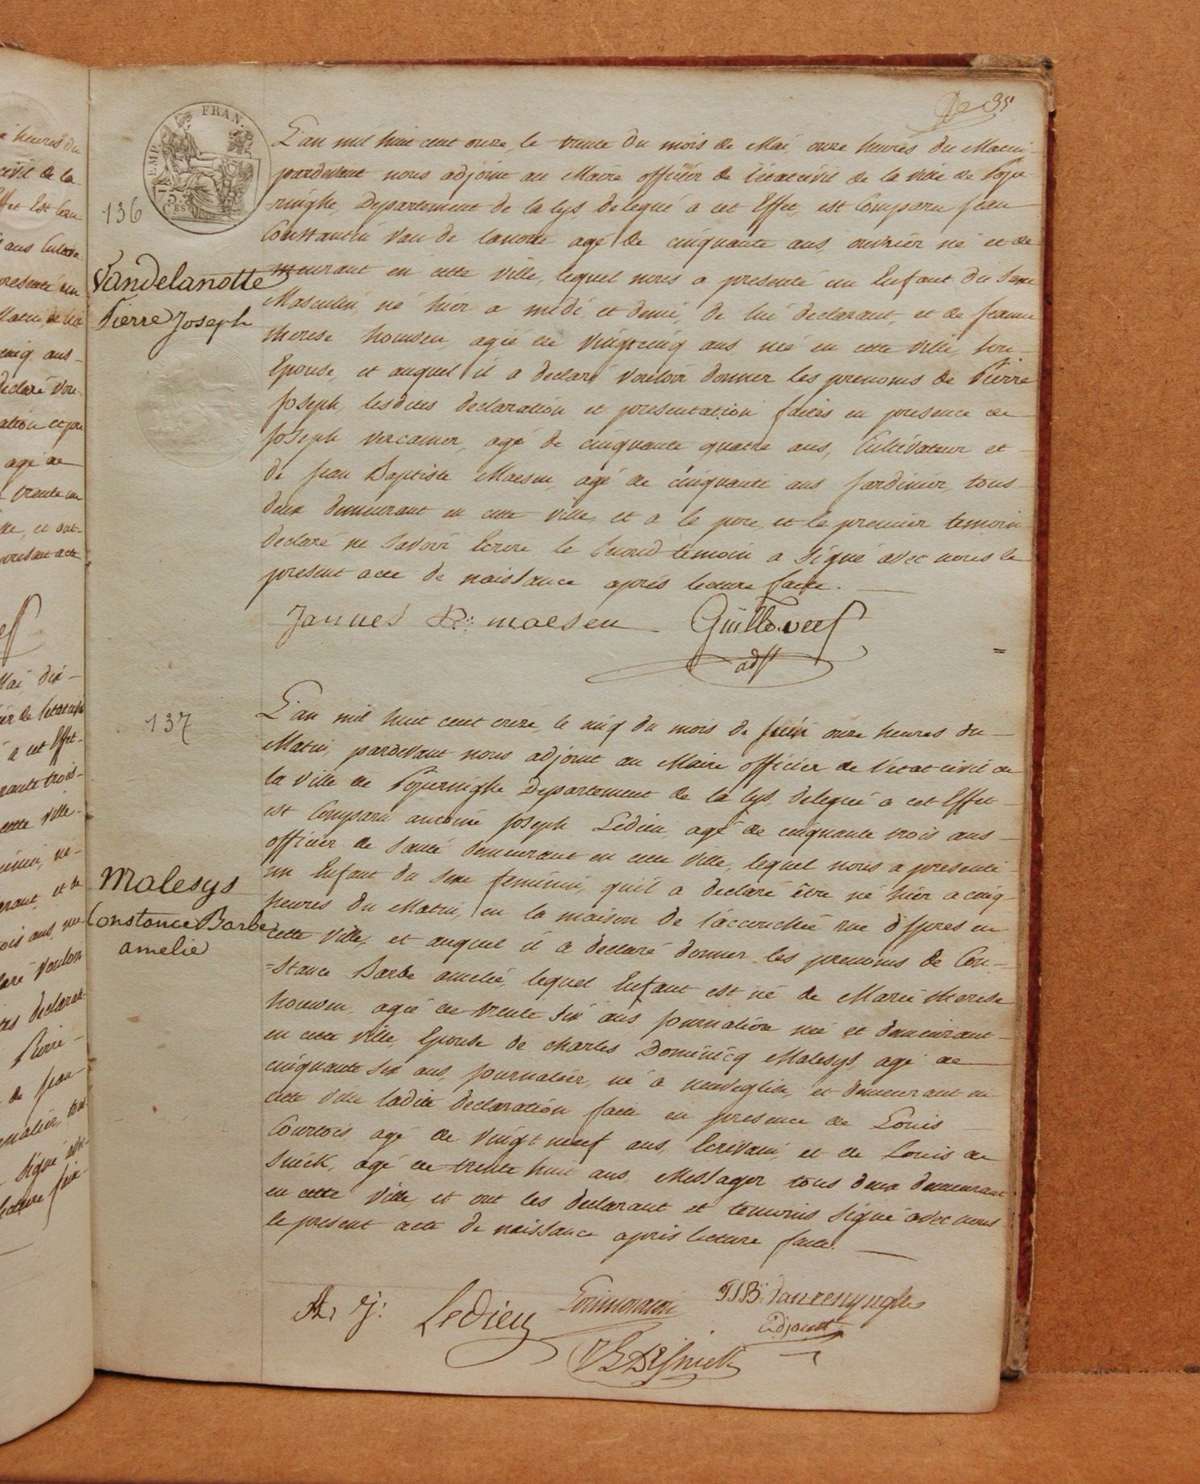 35
TIMP. EMP. FRAN.
136
Vandelanotte
Pierre Joseph
L'an mil huit cent onze, le trente du mois de Mai onze heures du Matin
pardevant nous adjoint au Maire officier de l'état civil de la ville de Pope
-ringhe, Departement de la Lys delegué a cet Effet, est Comparu Jean
Constantin Van de lanotte agé de cinquante ans, ouvrier né et de
meurant en cette ville, lequel nous a presenté un Enfant du Sexe
Masculin, né hier a midi et demi, de lui declarant, et de Jeanne
therese houwen agée de vingtcinq ans née en cette ville, Son
Epouse, et auquel il a declaré vouloir donner les prenoms de Pierre
Joseph, lesdites declaration et presentation faites en presence de
Joseph vercamer, agé de cinquante quatre ans, Cultivateur et
de Jean Baptiste Maesen, agé de cinquante ans Jardinier, tous
deux demeurant en cette ville, et a le pere, et le premier temoin
declaré ne Savoir Ecrire le Second temoin a Signé avec nous le
present acte de naissance après lecture faite.
Jannes B: maesen
adjt
137
Malesys
Constance Barbe
amelie
L'an mil huit cent onze, le cinq du mois de Juin onze heures du
Matin, pardevant nous adjoint au Maire officier de l'état civil de
la Ville de Poperinghe Departement de la Lys, delegué a cet Effet
est Comparu antoine Joseph Ledieu agé de cinquante trois ans
officier de Santé demeurant en cette ville, lequel nous a presenté
un Enfant du Sexe feminin, qu'il a declaré être né hier a cinq
heures du Matin, en la maison de l'accouchée rue d'Ypres en
cette ville, et auquel il a declaré donner les prenoms de Con-
=stance Barbe amelie, lequel Enfant est né de Marie therese
houwen, agée de trente Six ans Journalière née et demeurant
en cette ville Epouse de Charles Dominicq Malesys agé de
cinquante Six ans, Journalier, né a et demeurant en
cette ville ladite declaration faite en presence de Louis
Courtois agé de vingt neuf ans, Ecrivain et de Louis de
Snick, agé de trente huit ans, Messager tous deux demeurant
en cette ville, et ont les declarant et temoins Signé avec nous
le present acte de naissance après lecture faite.
A: J: Ledieu
adjoint